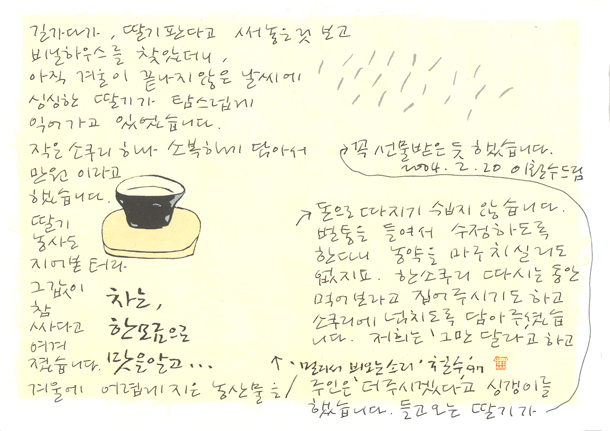 길가다가, 딸기판다고 써놓은것 보고
비닐하우스를 찾았더니,
아직 겨울이 끝나지 않은 날씨에
싱싱한 딸기가 탐스럽게
익어가고 있었습니다.
작은 소쿠리 하나 소복하게 담아서
만원 이라고
했습니다.
딸기
농사도
지어본 터라
그값이
참
싸다고
여겨
졌습니다.
겨울에 어렵게 지은 농산물을
돈으로 따지기 쉽지 않습니다.
벌통을 들여서 수정하도록
한다니 농약을 마구치실리도
없지요. 한소쿠리 따시는 동안
먹어보라고 집어주시기도 하고
소쿠리에 넘치도록 담아 주셨습
니다. 저희는 '그만 달라'고 하고
주인은 '더 주시겠다'고 싱갱이를
했습니다. 들고오는 딸기가
꼭 선물받은 듯 했습니다.
2004. 2. 20 이철수드림
차는,
한모금으로
맛을알고...
'멀리서 비오는소리' 철수 '97